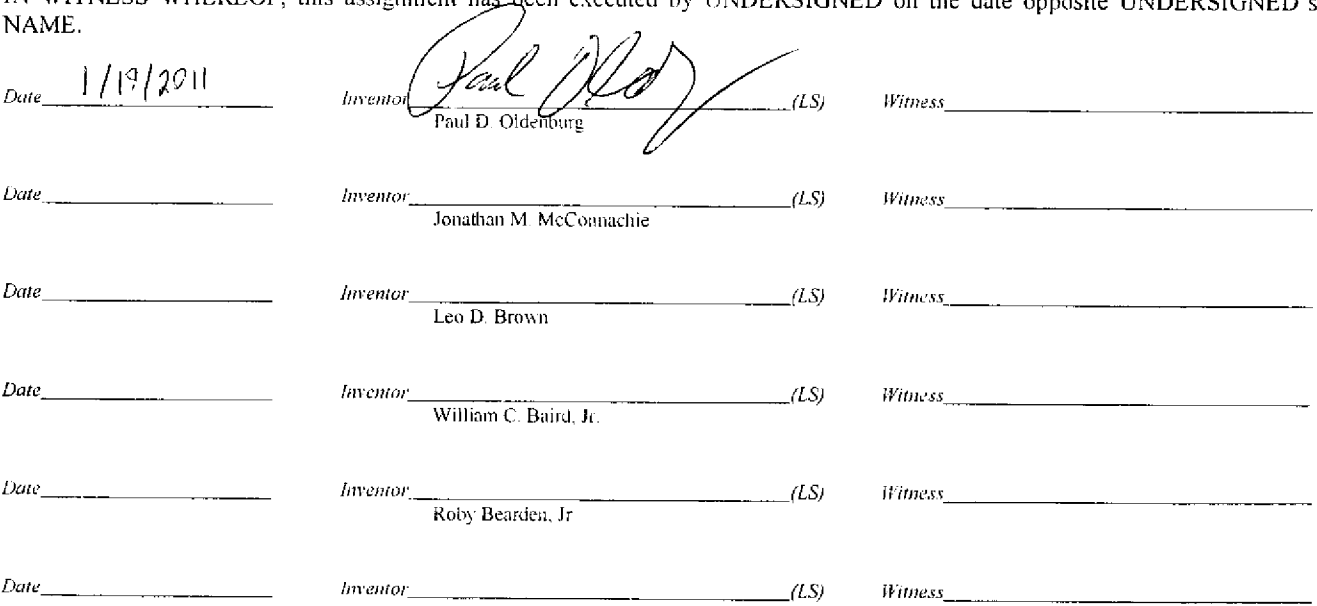 IN WITNESS WHEREOF, this assignment has been executed by UNDERSIGNED on the date opposite UNDERSIGNED's
NAME.
Date 1/19/2011 Inventor Paul (LS) Witness
Paul D. Oldenburg
Date Inventor (LS) Witness
Jonathan M. McConnachie
Date Inventor (LS) Witness
Leo D. Brown
Date Inventor (LS) Witness
William C. Baird, Jr.
Date Inventor (LS) Witness
Roby Bearden, Jr
Date Inventor (LS) Witness